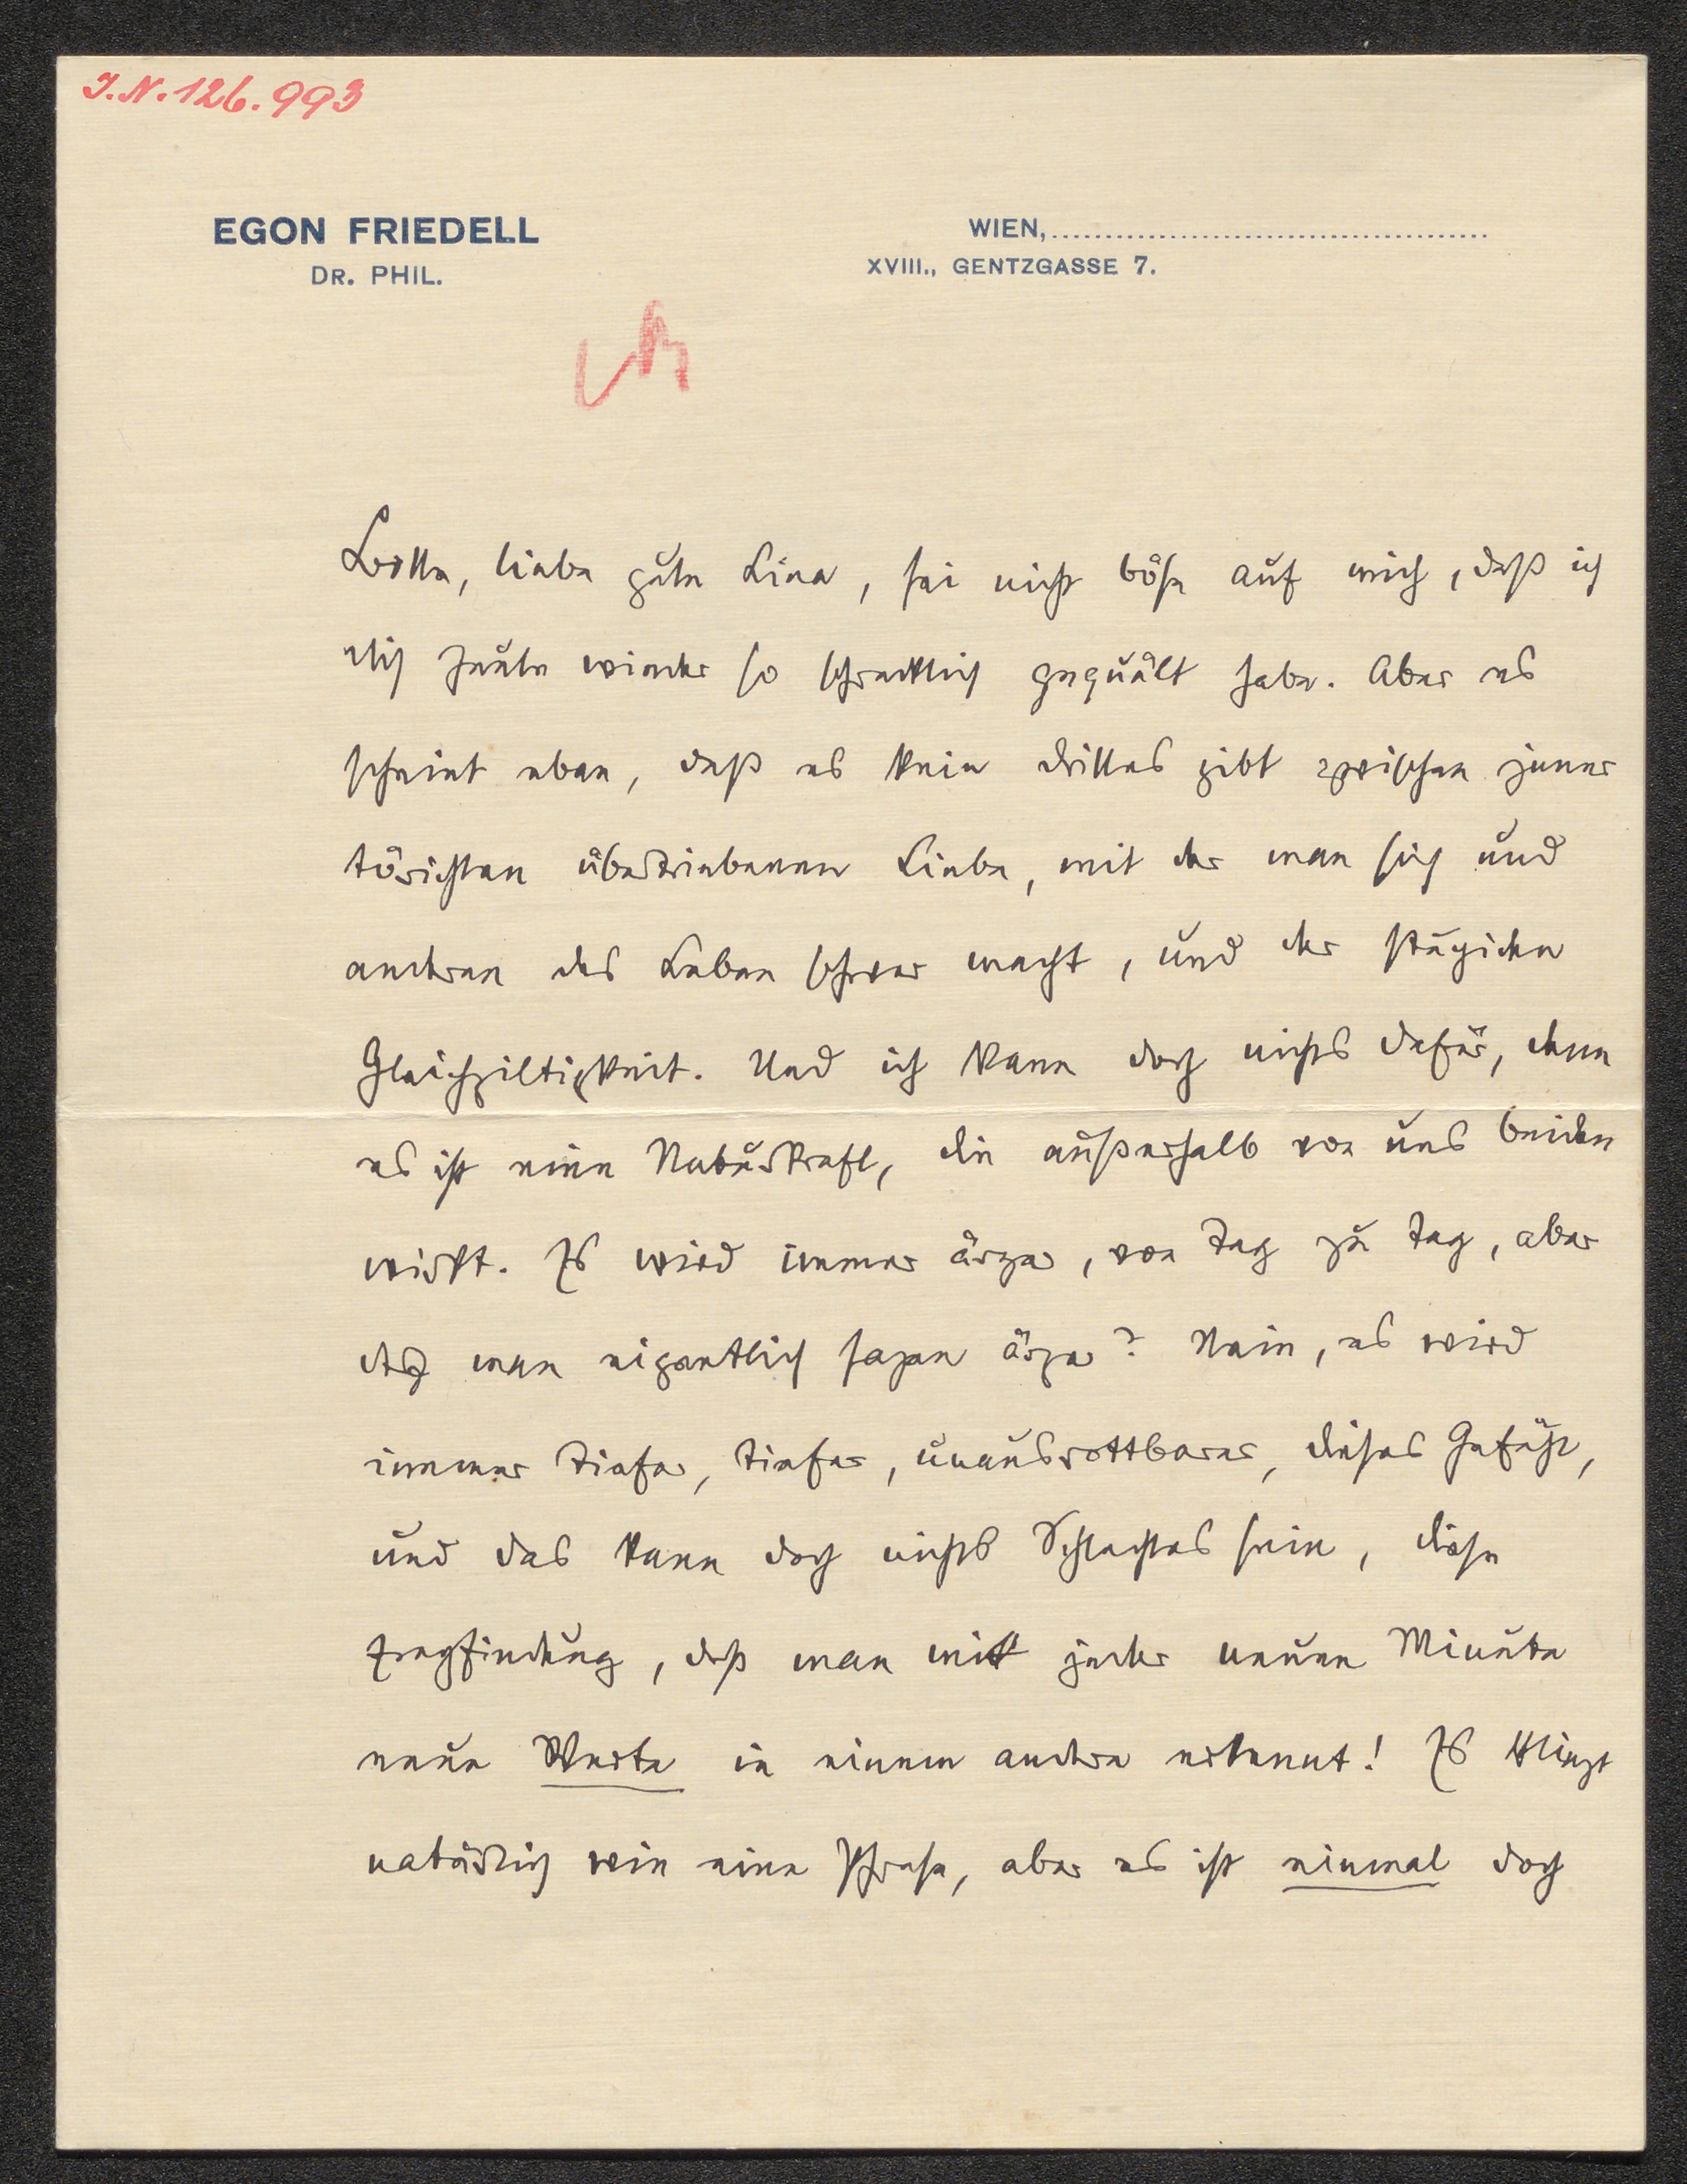 I.N. 126.993
EGON FRIEDELL
DR. PHIL.
WIEN,
XVIII., GENTZGASSE 7.
Bitte, liebe gute Lina, sei nicht böse auf mich, daß ich
dich heute wieder so schrecklich gequält habe. Aber es
scheint eben, daß es kein drittes gibt zwischen jener
törichten übertriebenen Liebe, mit der man sich und
andren das Leben schwer macht, und der stupiden
Gleichgiltigkeit. Und ich kann doch nichts dafür, denn
es ist eine Naturkraft, die außerhalb von uns beiden
wirkt. Es wird immer ärger, von Tag zu Tag, aber
darf man eigentlich sagen ärger? Nein, es wird
immer tiefer, tiefer, unausrottbarer, dieses Gefühl,
und das kann doch nichts Schlechtes sein, diese
Empfindung, daß man mit jeder neuen Minute
neue Werte in einem andern erkennt! Es klingt
natürlich wie eine Phrase, aber es ist einmal doch